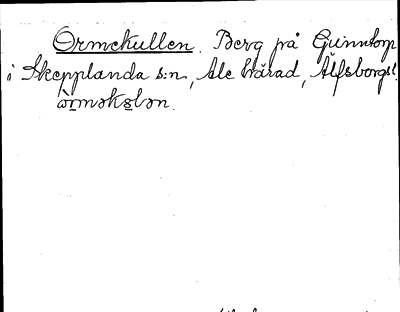 Ormekullen. Berg på Gunntorp
i Skepplanda s:n, Ale härad, Älfsborgs l.
òrməkslən.